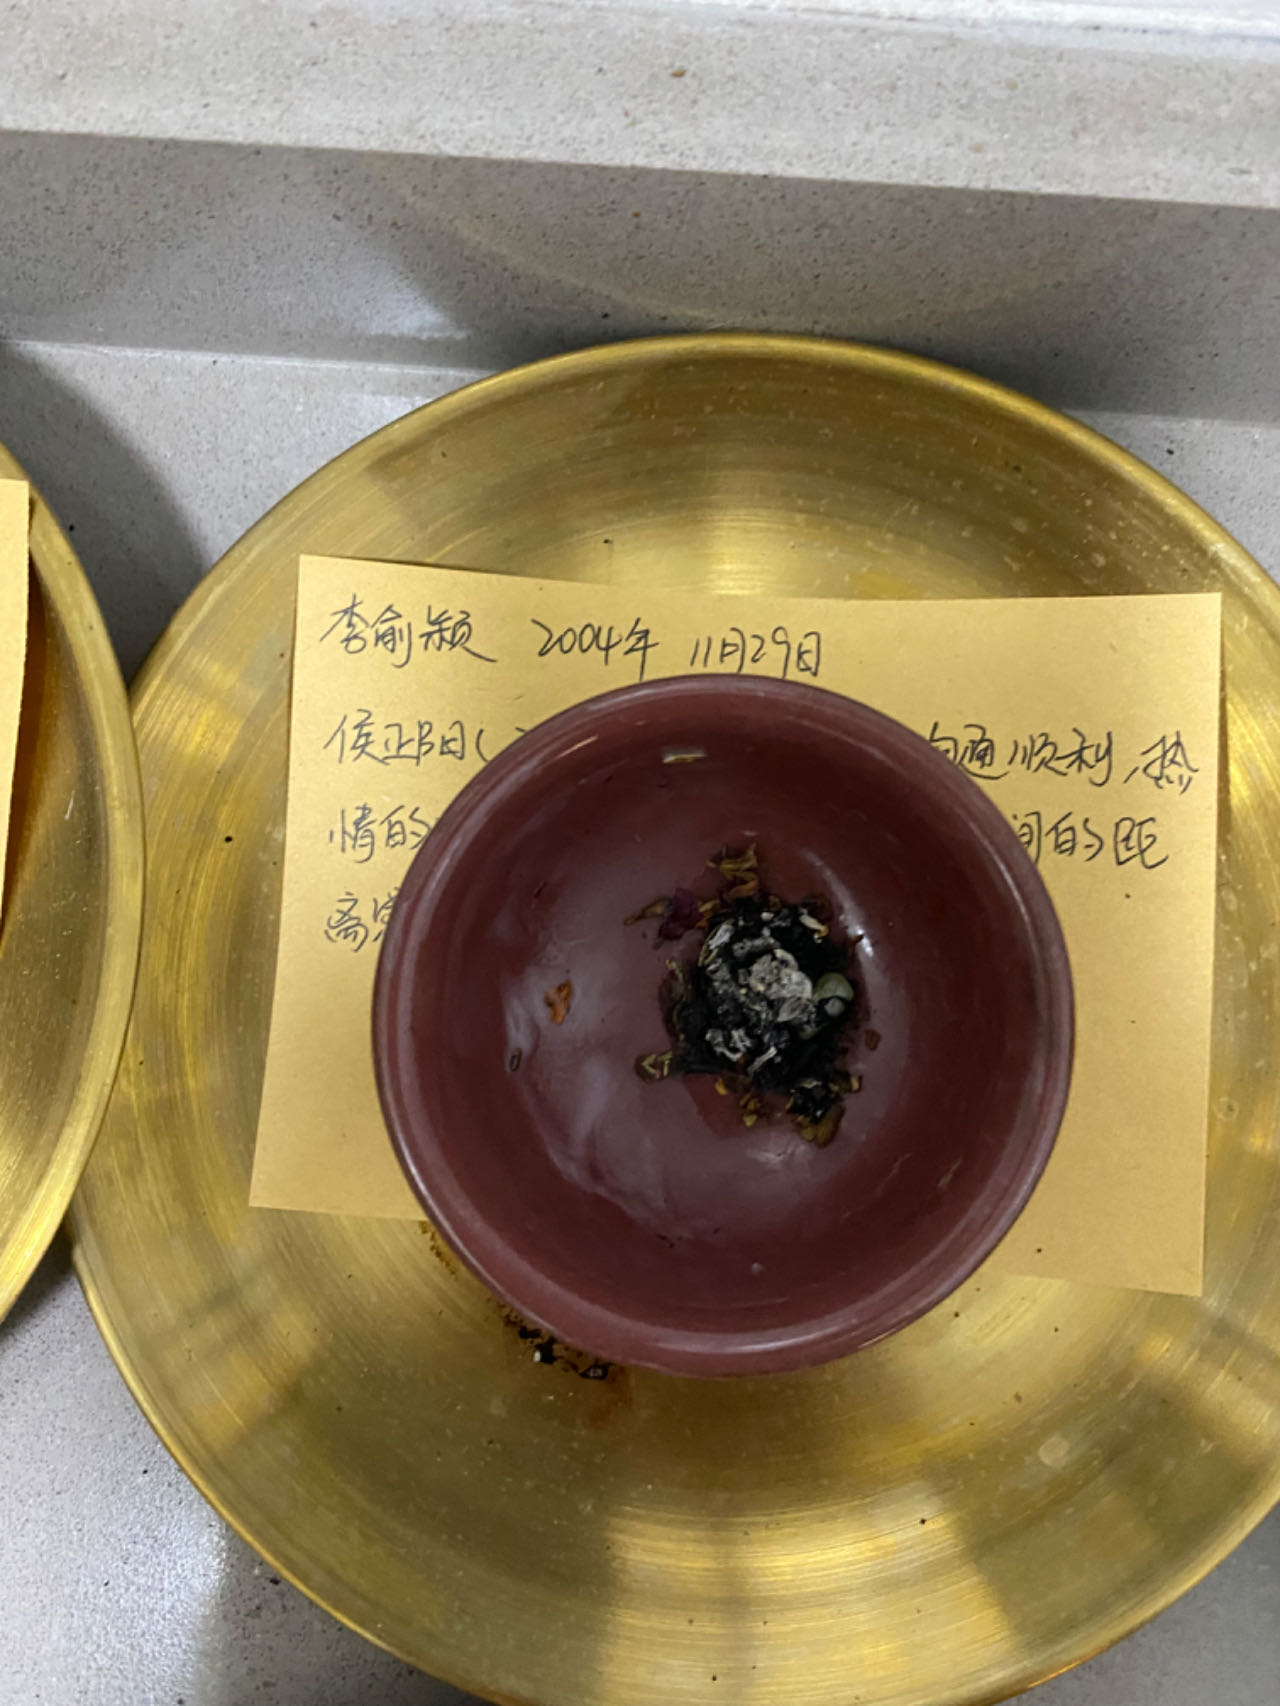 李俞颖 2004年 11月29日
侯正阳( 沟通顺利,热
情的 间的距
离感